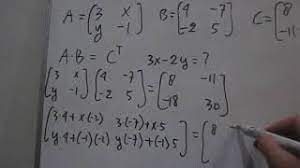 A = (3 x y -1) B = (4 -7 -2 5) C = (8
A·B = Cᵀ 3x-2y = ?
(3 x y -1)(4 -7 -2 5) = [8 -11 -18 30]
[3·4+x(-2) 3(-7)+x·5 y·4+(-1)(-2) y(-7)+(-1)5] = [8